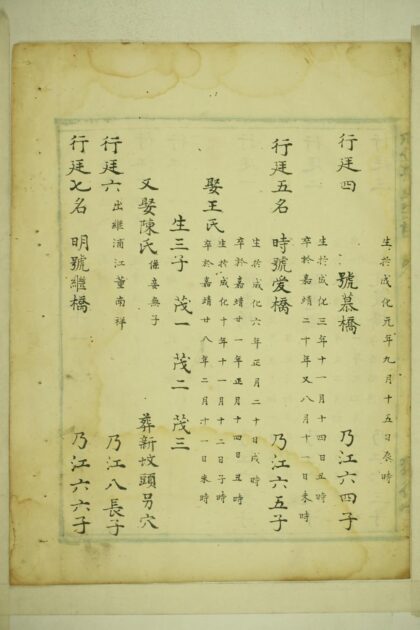 生於成化元年九月十五日辰時
行廷四 號慕橋 乃江六四子
生於成化三年十一月十四日丑時
卒於嘉靖二十年又八月十一日未時
行廷五名 時號愛橋 乃江六五子
生於成化六年正月二十日戌時
卒於嘉靖廿一年正月十四日丑時
娶王氏
生於成化十年十一月十二日子時
卒於嘉靖廿八年二月十一日未時
生三子 茂一 茂二 茂三
又娶陳氏 係妾無子 葬新坟頭另穴
行廷六 出繼浦江董南祥 乃江八長子
行廷七名 明號繼橋 乃江六六子